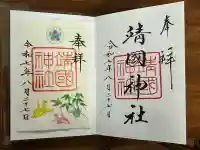 奉拝
靖國神社
令和七年八月二十七日
奉拝
靖國神社
令和七年八月二十七日